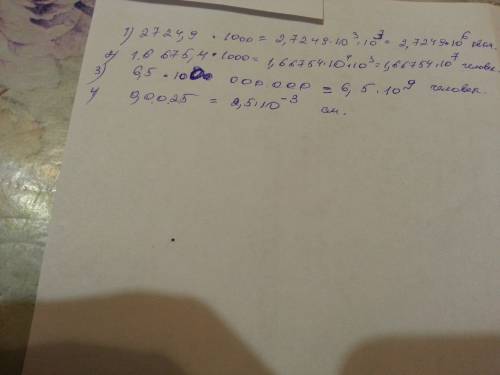 1) 2724,9 • 1000 = 2,7249•10³•10³ = 2,7249•10⁶
2) 16 675,4 • 1000 = 1,66754•10⁴•10³ = 1,66754•10⁷ человек.
3) 6,5 • 1000 000.000 = 6,5.10⁹ человек.
4) 0,0025 = 2,5•10⁻³ см.